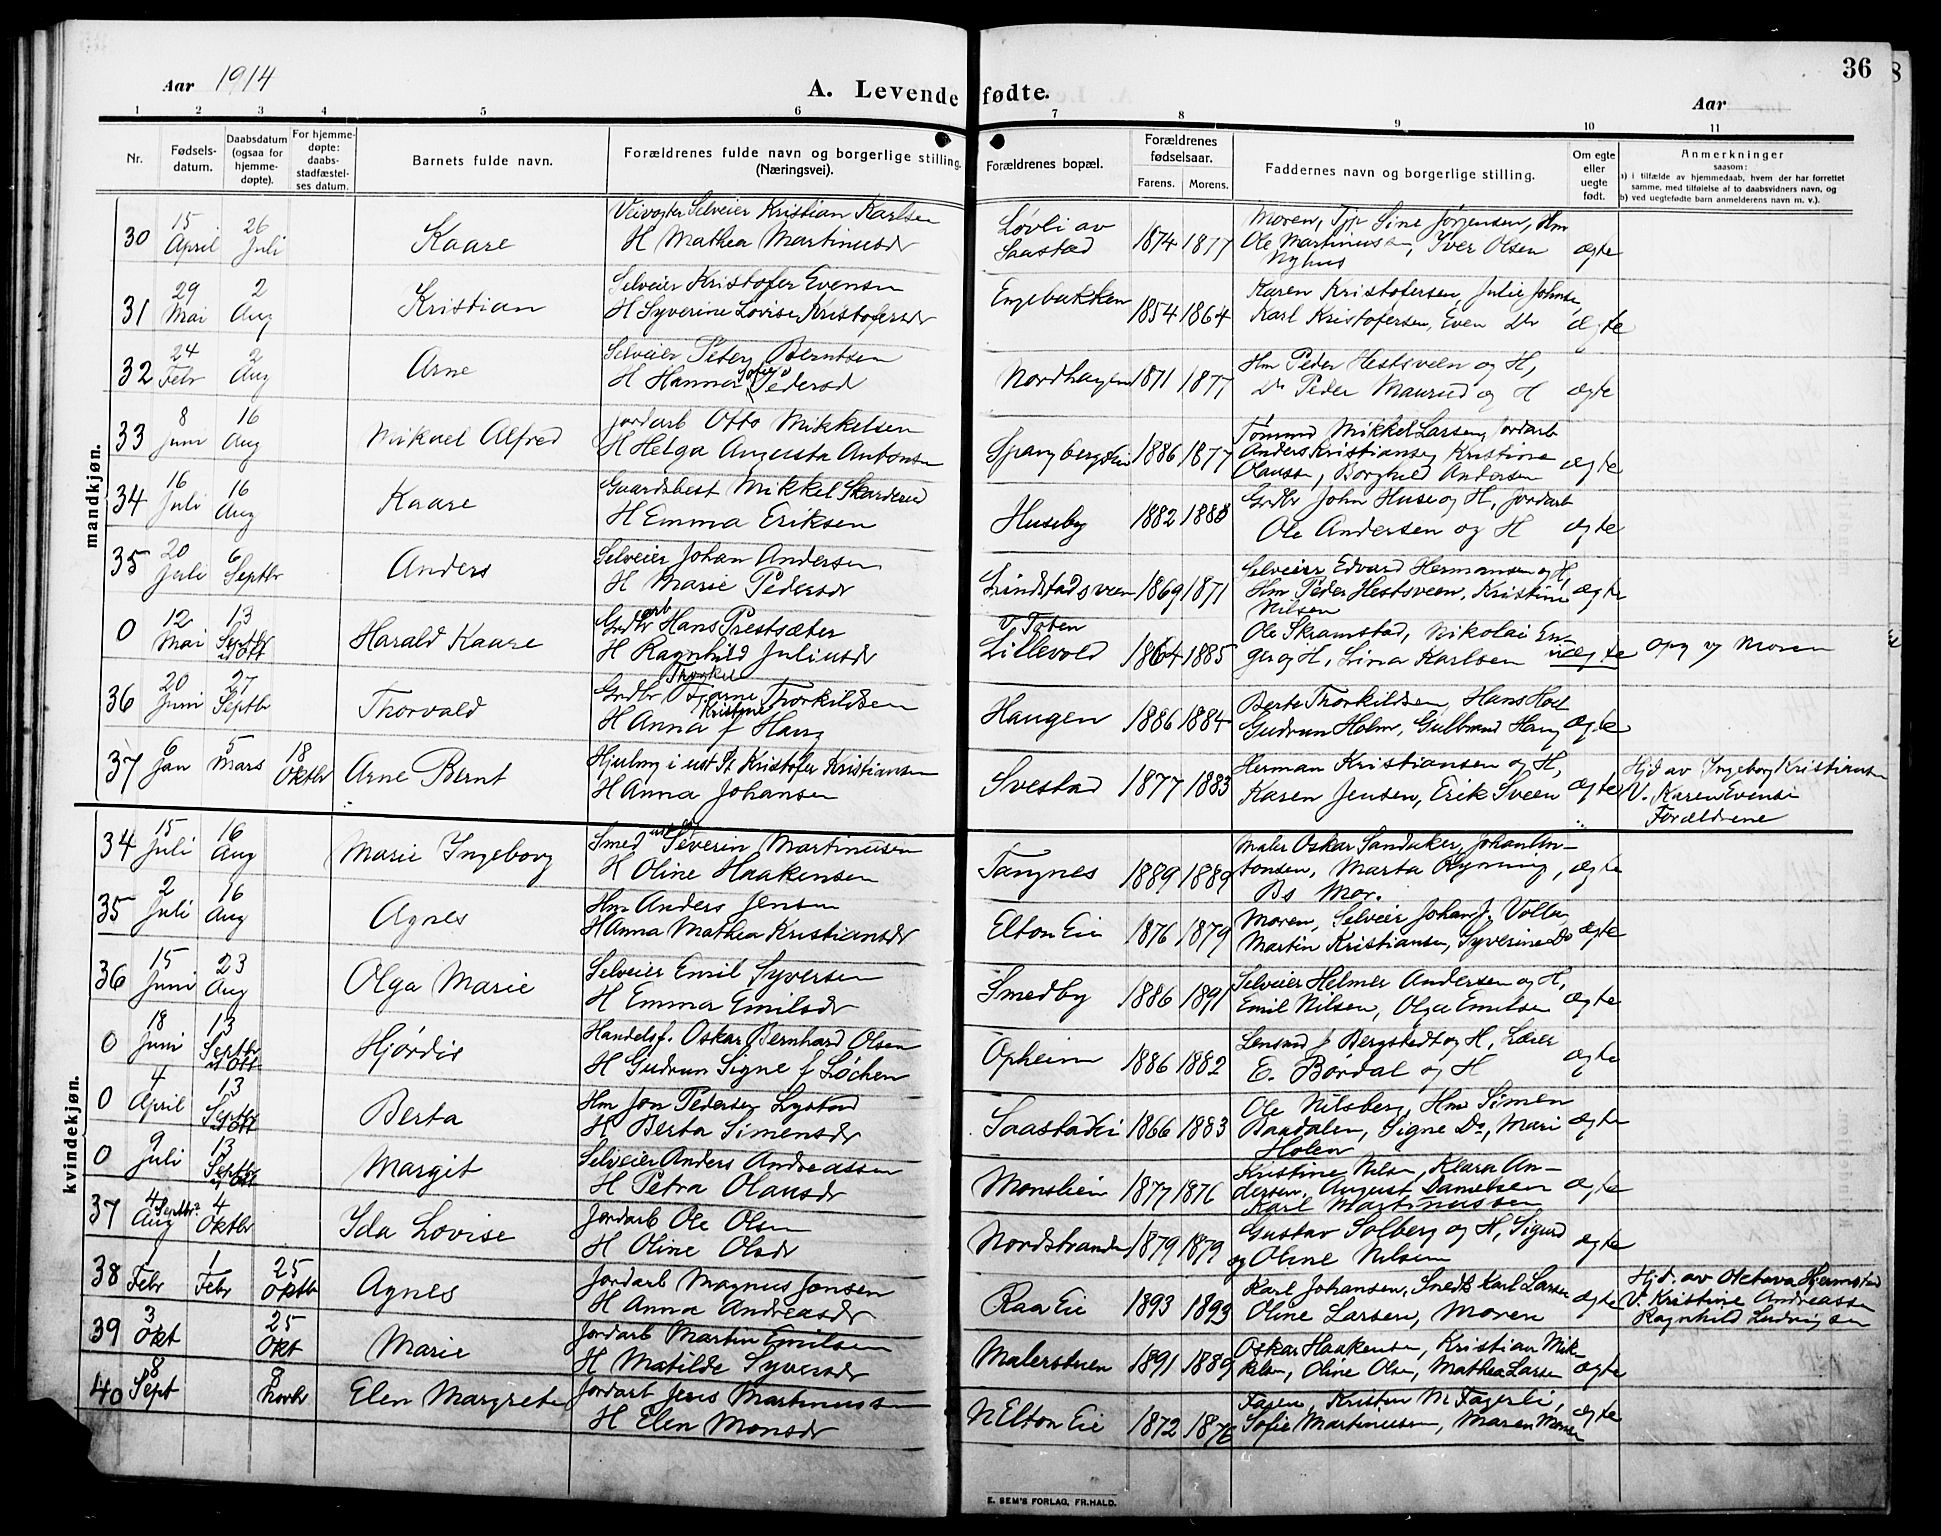 36
Aar 1914
A. Levende fødte.
Aar
1 2 3 4 5 6 7 8 9 10 11
Nr.
Fødsels-
datum.
Daabsdatum
(ogsaa for
hjemme-
døpte).
For hjemme-
døpte:
daabs-
stadfæstel-
ses datum.
Barnets fulde navn.
Forældrenes fulde navn og borgerlige stilling.
(Næringsvei).
Forældrenes bopæl.
Forældrenes
fødselsaar.
Farens. Morens.
Faddernes navn og borgerlige stilling.
Om egte
eller
uegte
født.
Anmerkninger
saasom:
a) i tilfælde av hjemmedaab, hvem der har forrettet
samme, med tilføielse af to daabsvidners navn, og
b) ved uegtefødte barn anmelderens navn m. v.).
mandkjøn.
30 15 April 26 Juli Kaare
Veivogter Selveier Kristian Karlsen
H Mathea Martinusdr
Løvli av
Saastad
1874 1877
Moren, Tjp Sine Jørgensen, Hm
Ole Martinussen, Iver Olsen
Nyhus
ægte
31 29 Mai 2 Aug Kristian
Selveier Kristofer Evensen
H Syverine Lovise Kristofersdr
Engebakken
1854 1864
Karen Kristofersen, Julie Johnsen
Karl Kristofersen, Even Do
ægte
32 24 Febr 2 Aug Arne
Selveier Peter Berntsen
H Hanna Sofie Pedersd
Nordhagen
1871 1877
Hm Peder Hestsveen og H,
Do Peder Maurud og H
ægte
33 8 Juni 16 Aug Mikael Alfred
Jordarb Otto Mikkelsen
H Helga Augusta Antonsen
Spangbergeie
1886 1877
Tømmd Mikkel Larsen, Jordarb
Anders Kristiansen, Kristine
Olaussen, Borghild Andersen
ægte
34 16 Juli 16 Aug Kaare
Gaardsbest Mikkel Skarderud
H Emma Eriksen
Huseby
1882 1888
Grdbr John Huse og H, Jordarb
Ole Andersen og H
ægte
35 20 Juli 6 Septbr Anders
Selveier Johan Andersen
H Marie Pedersdr
Lundstadsveen
1869 1871
Selveier Edvard Hermansen og H,
Hm Peder Hestsveen, Kristine
Nilsen
ægte
0 12 Mai 13 Septbr Harald Kaare
Grdbr arb Hans Prestsæter
H Ragnhild Juliusdr
V Toten
Lillevold
1864 1885
Ole Skramstad, Nikolai En-
ger og H, Lina Karlsen
uægte
opg af Moren
36 20 Juni 27 Septbr Thorvald
Thorkel
Grdbr Bjarne Thorkildsen
H Anna Kristine f Haug
Haugen
1886 1884
Berte Thorkildsen, Hans Hoel
Gudrun Holm, Gulbrand Haug
ægte
37 6 Jan 5 Mars 18 Oktbr Arne Bernt
Hjulmg i ust St Kristofer Kristiansen
H Anna Johansen
Svestad
1877 1883
Herman Kristiansen og H,
Karen Jensen, Erik Sveen
ægte
Hjd av Ingeborg Kristiansen
V. Karen Evensen
Forældrene
kvindekjøn.
34 15 Juli 16 Aug Marie Ingeborg
Smed Severin Martinusen
H Oline Haakensen
Tangnes
1889 1889
Maler Oskar Sandaker, Johan An-
tonsen, Marta Rogning,
Bs Mor.
ægte
35 2 Juli 16 Aug Agnes
Hm Anders Jensen
H Anna Mathea Kristiansdr
Elton Eie
1876 1879
Moren, Selveier Johan J. Vollen
Martin Kristiansen, Syverine Do
ægte
36 15 Juni 23 Aug Olga Marie
Selveier Emil Syversen
H Emma Emilsdr
Smedby
1886 1891
Selveier Helmer Andersen og H,
Emil Nilsen, Olga Emilsen
ægte
0 18 Juni 13 Septbr Hjørdis
Handelsf. Oskar Bernhard Olsen
H Gudrun Signe f Løchen
Opheim
1886 1882
Lensmd J Bergstedt og H, Lærer
E. Børdal og H
ægte
0 4 April 13 Septbr Berta
Hm Jon Pedersen Lystad
H Berta Simensdr
Saastadei
1866 1883
Ole Nilsberg, Hm Simen
Baadalen, Signe Do, Mari
Holen
ægte
0 9 Juli 13 Septbr Margit
Selveier Anders Andreassen
H Petra Olausdr
Monslien
1877 1876
Kristine Nilsen, Klara An-
dersen, August Danielsen
Karl Martinussen
ægte
37 4 Septbr. Aug 4 Oktbr Ida Lovise
Jordarb Ole Olsen
H Oline Olsdr
Nordstranden
1879 1879
Gustav Solberg og H, Sigurd
og Oline Nilsen
ægte
38 1 Febr 1 Febr 25 Oktbr Agnes
Jordarb Magnus Jonsen
H Anna Andreasdr
Raa Eie
1893 1893
Karl Johansen, Snedk Karl Larsen
Oline Larsen, Moren
ægte
Hjd. av Octava Hjermstad
V. Kristine Andreassen
Ragnhild Ludvigsen
39 3 Okt 25 Okt Marie
Jordarb Martin Emilsen
H Matilde Syversdr
Malerstuen
1891 1889
Oskar Haakensen, Kristian Mik-
kelsen, Oline Olsen, Mathea Larsen
ægte
40 8 Sept 8 Novbr Elen Margrete
Jordarb Jens Martinussen
H Elen Monsdr
N Elton Eie
1872 1876
Faren, Kristen M Fagerli,
Sofie Martinussen, Maren Monsen
ægte
E. SEM'S FORLAG, FR.HALD.